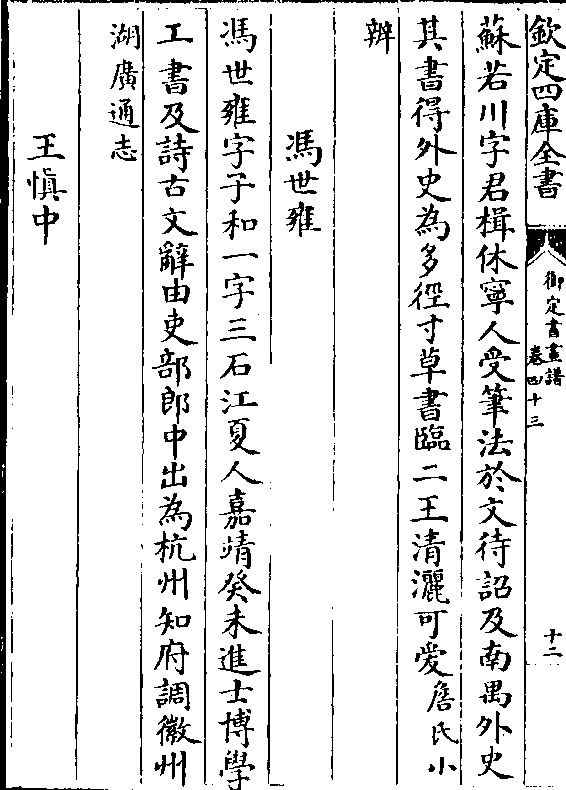 欽定四庫全書
御定書畫譜
卷四十三
十二
蘇若川字君楫休寧人受筆法於文待詔及南禺外史
其書得外史為多徑寸草書臨二王清灑可愛詹氏小
辨
馮世雍
馮世雍字子和一字三石江夏人嘉靖癸未進士博學
工書及詩古文辭由吏部郎中出為杭州知府調徽州
湖廣通志
王慎中